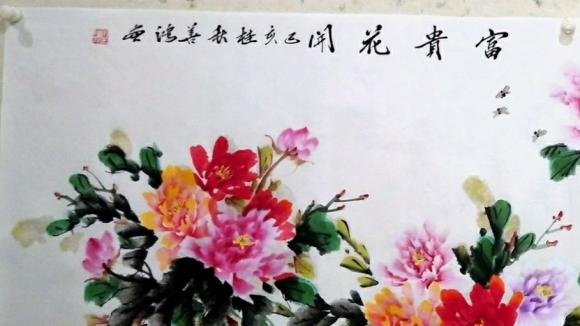 富貴花開己亥桂秋善鴻画